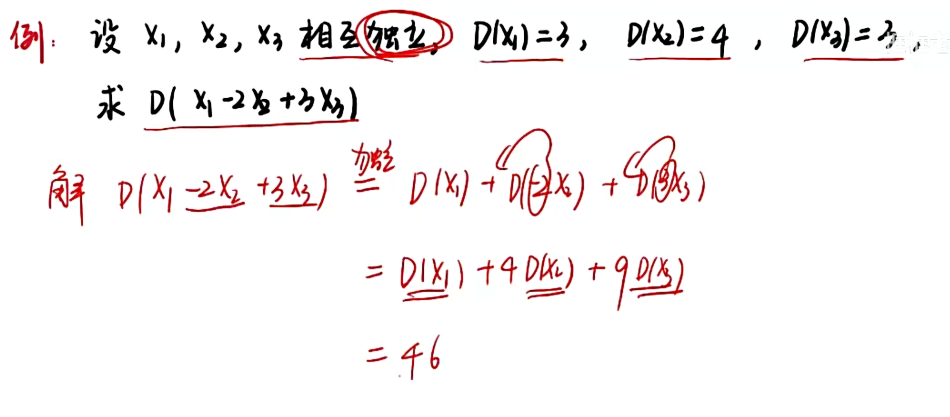 例: 设 X₁, X₂, X₃ 相互独立, D(X₁)=3, D(X₂)=4, D(X₃)=3,
求 D( X₁-2X₂+3X₃)
解 D(X₁-2X₂+3X₃) 独立 = D(X₁) + D(-2X₂) + D(3X₃)
= D(X₁) + 4D(X₂) + 9D(X₃)
= 46